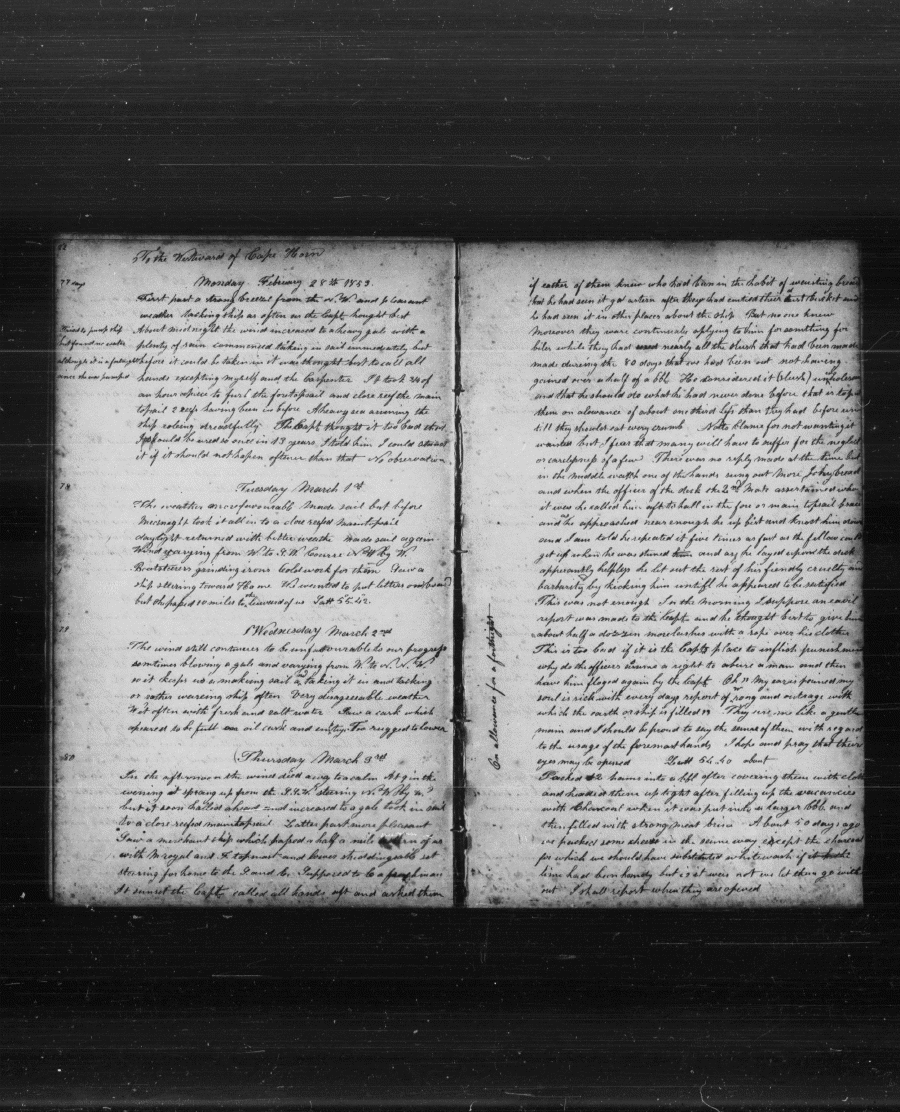 To the Westward of Cape Horn
77 days
Monday February 28th 1853
First part a strong breeze from the N.W and pleasant
weather tacking ship as often as the Capt thought best
Tried to pump ship
but found no water
although it is a fortnight
since she was pumped
About mid night the wind increased to a heavy gale with a
plenty of rain commenced taking in sail immediately but
before it could be taken in it was thought best to call all
hands excepting myself and the Carpenter It took 3/4 of
an hour apiece to furl the foretopsail and close reef the main
topsail 2 reefs having been in before A heavy sea running the
ship roleing dreadfully The Capt thought it too bad that
I could be used so once in 13 years, I told him I could stand
it if it should not hapen oftener than that No observation
78
Tuesday March 1st
The weather unfavourable Made sail but before
Midnight took it all in to a close reefd Maintopsail
daylight returned with better weather Made sail again
Wind varying from W. to S.W Course N.W by W.
Boatsteerers grinding irons Cold work for them Saw a
ship steering toward home We wanted to put letters on board
but she passed 10 miles to leeward of us Latt 55.42.
79
Wednesday March 2nd
The wind still continues to be unfavourable to our progress
somtimes blowing a gale and varying from W. to N.N.W.
so it keeps us makeing sail and taking it in and tacking
or rather wareing ship often Very disagreeable weather
Wet often with fresh and salt water Saw a cask which
apeared to be full an oil cask and empty Too rugged to lower
80
Thursday March 3rd
In the afternoon the wind died away to a calm At 9 in the
evening it sprang up from the S.S.W. steering N.W by W.
but it soon hailed ahead and increased to a gale took in sail
to a close reefed maintopsail Latter part more pleasant
Saw a merchant ship which passed half a mile astern of us
with M royal and F. topmast and lower studdingsails set
steering for home to the S and E. Supposed to be a
At sunset the Capt called all hands aft and asked them
if eather of them knew who had been in the habit of wasting bread
that he had seen it go astern after they had emtied their and
he had seen it in other places about the ship But no one knew
Moreover they ware continualy aplying to him for something for
biles while they had used nearly all the slush that had been made
made dureing the 80 days that we had been out not having
gained over a half of a bbl He considered it (slush) unholesom
and that he should do what he had never done before that is to put
them on alowance of about one third less than they had before until
till they should eat every crumb Note blame for not wanting it
wasted but I fear that many will have to suffer for the neglect
or carelessness of a few There was no reply made at the time but
in the middle watch one of the hands sung out More Johny bread
and when the officer of the deck the 2nd Mate assertained who
it was he called him aft to hall in the fore or main topsail brace
and as he approached near enough he up fist and knockt him down
and I am told he repeated it five times as fast as the fellow could
get up when he was stuned and as he layed upon the deck
apparently helpless he let out the rest of his fiendly cruelty and
barbarity by kicking him untill he appeared to be satisfied
This was not enough In the morning I suppose an eavil
report was made to the Capt and he thought best to give him
about half a dozzin more lashes with a rope over his clothes
This is too bad if it is the Capts place to inflict punishment
why do the officers asume a right to abuse a man and then
have him floged again by the Capt Oh my ear is pained my
soul is sick with every days report of rong and outrage with
which the earth or ship is filled They use me like a gentle
man and I should be proud to say the same of them with regard
to the usage of the foremast hands I hope and pray that their
eyes may be opened Latt 54.40 about
Packed 42 hams into a bbl after covering them with cloth
and headed them up tight after filling up the vacancies
with Charcoal when it was put into a larger Cbb and
then filled with strong meat brine About 50 days ago
we packed some cheese in the same way except the charcoal
for which we should have substituted whitewash if
lime had been handy but as it were not we let them go with
out I shall report when they are opened
On allowance for a fortnight